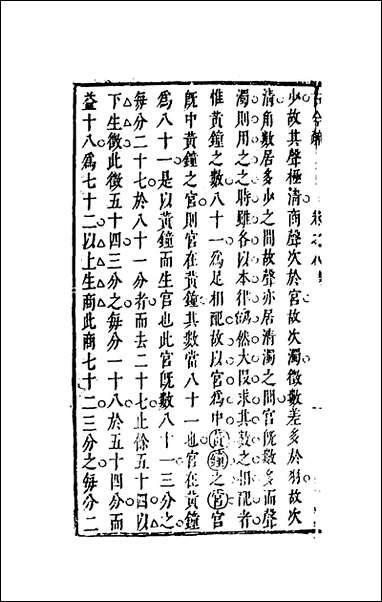 少故其聲極清商聲次於宮故次濁徵數差多於羽故次
清角數居多少之間故聲亦居清濁之間宮旣數多而聲
濁則用之之時雖各以本律爲然大段求其數之相配者
惟黃鐘之數八十一爲足相配故以宮爲中黃鐘之宮宮
旣中黃鐘之宮則宮在黃鐘其數當八十一也宮在黃鐘
爲八十一是以黃鐘而生宮也此宮旣數八十一三分之
每分二十七於八十一分者而去二十七止餘五十四以
下生徵此徵五十四三分之每分一十八於五十四分而
益十八爲七十二以上生商此商七十二三分之每分二